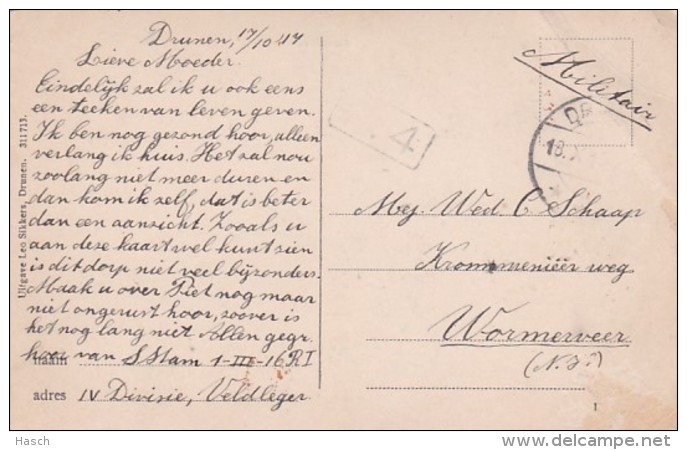 Drunen, 17/10 '17
Lieve Moeder.
Eindelijk zal ik u ook eens
een teeken van leven geven.
Ik ben nog gezond hoor, alleen
verlang ik huis. Het zal nou
zoolang niet meer duren en
dan kom ik zelf, dat is beter
dan een aanzicht. Zooals u
aan deze kaart wel kunt zien
is dit dorp niet veel bijzonders.
Maak u over Piet nog maar
niet ongerust hoor, zoover is
het nog lang niet. Allen gegr.
hoor van S Stam 1-III-16 R I
naam
adres IV Divisie, Veldleger
Uitgave Leo Sikkers, Drunen. 311713.
Militair
4
DR
18.
Mej. Wed. C. Schaap
Krommenieër weg
Wormerveer
(N.H.)
1
Hasch
delcampe.net